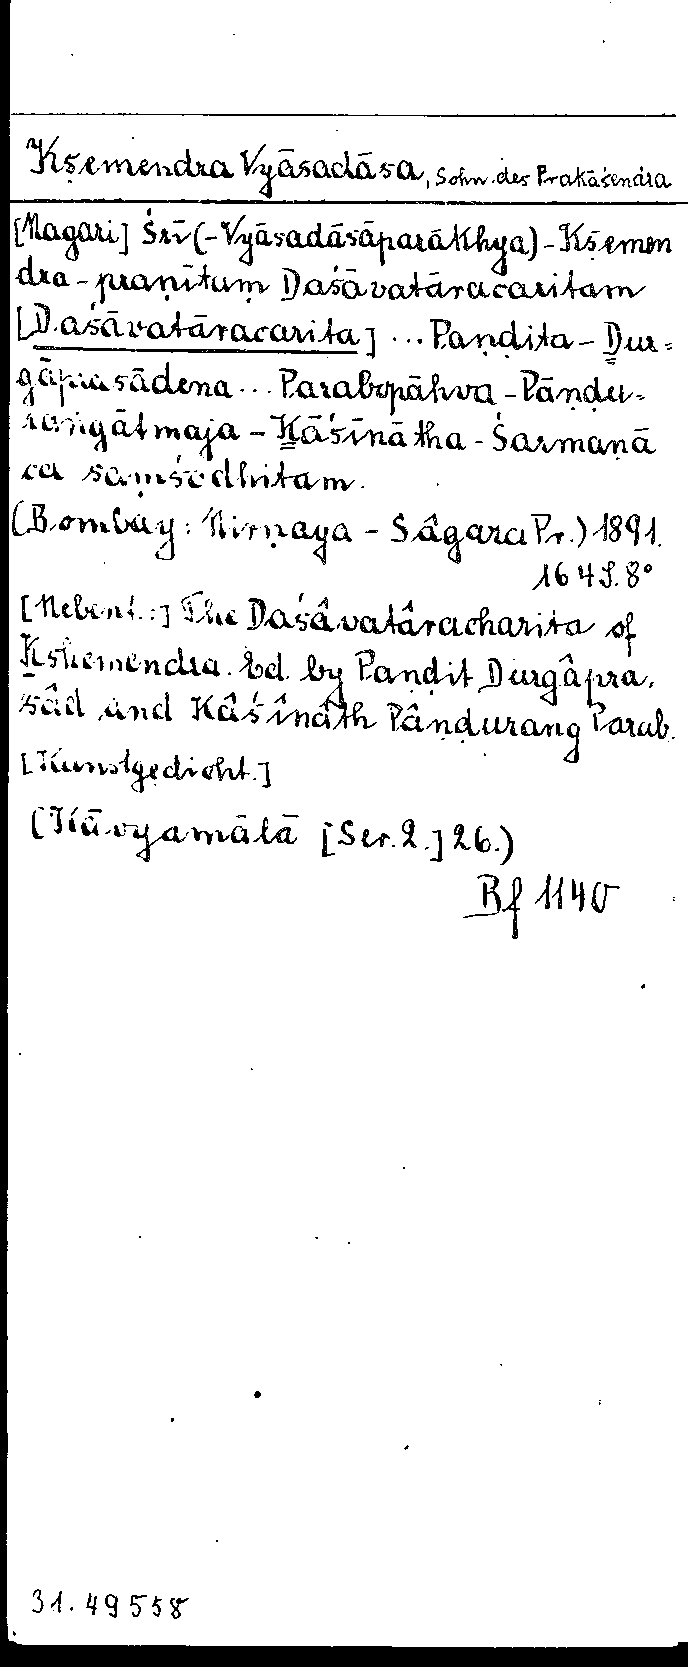 Kṣemendra Vyāsadāsa, Sohn des Prakāśendra
[Nagari] Śrī (-Vyāsadāsāparākhya) - Kṣemen
dra - praṇītuṃ Daśāvatāracaritam
[Daśāvatāracarita] ... Paṇḍita - Dur-
gāprasādena ... Parabopāhva - Pāṇḍu-
raṅgātmaja - Kāśīnātha - Śarmaṇā
ca saṃśodhitam.
(Bombay: Nirṇaya - Sâgara Pr.) 1891.
164 S. 8°
[Nebent.:] The Daśâvatâracharita of
Kshemendra. Ed. by Paṇḍit Durgâpra-
sâd and Kâśînâth Pâṇḍurang Parab.
[Kunstgedicht.]
(Kāvyamālā [Ser. 2.] 26.)
Bf 1140
31.49558